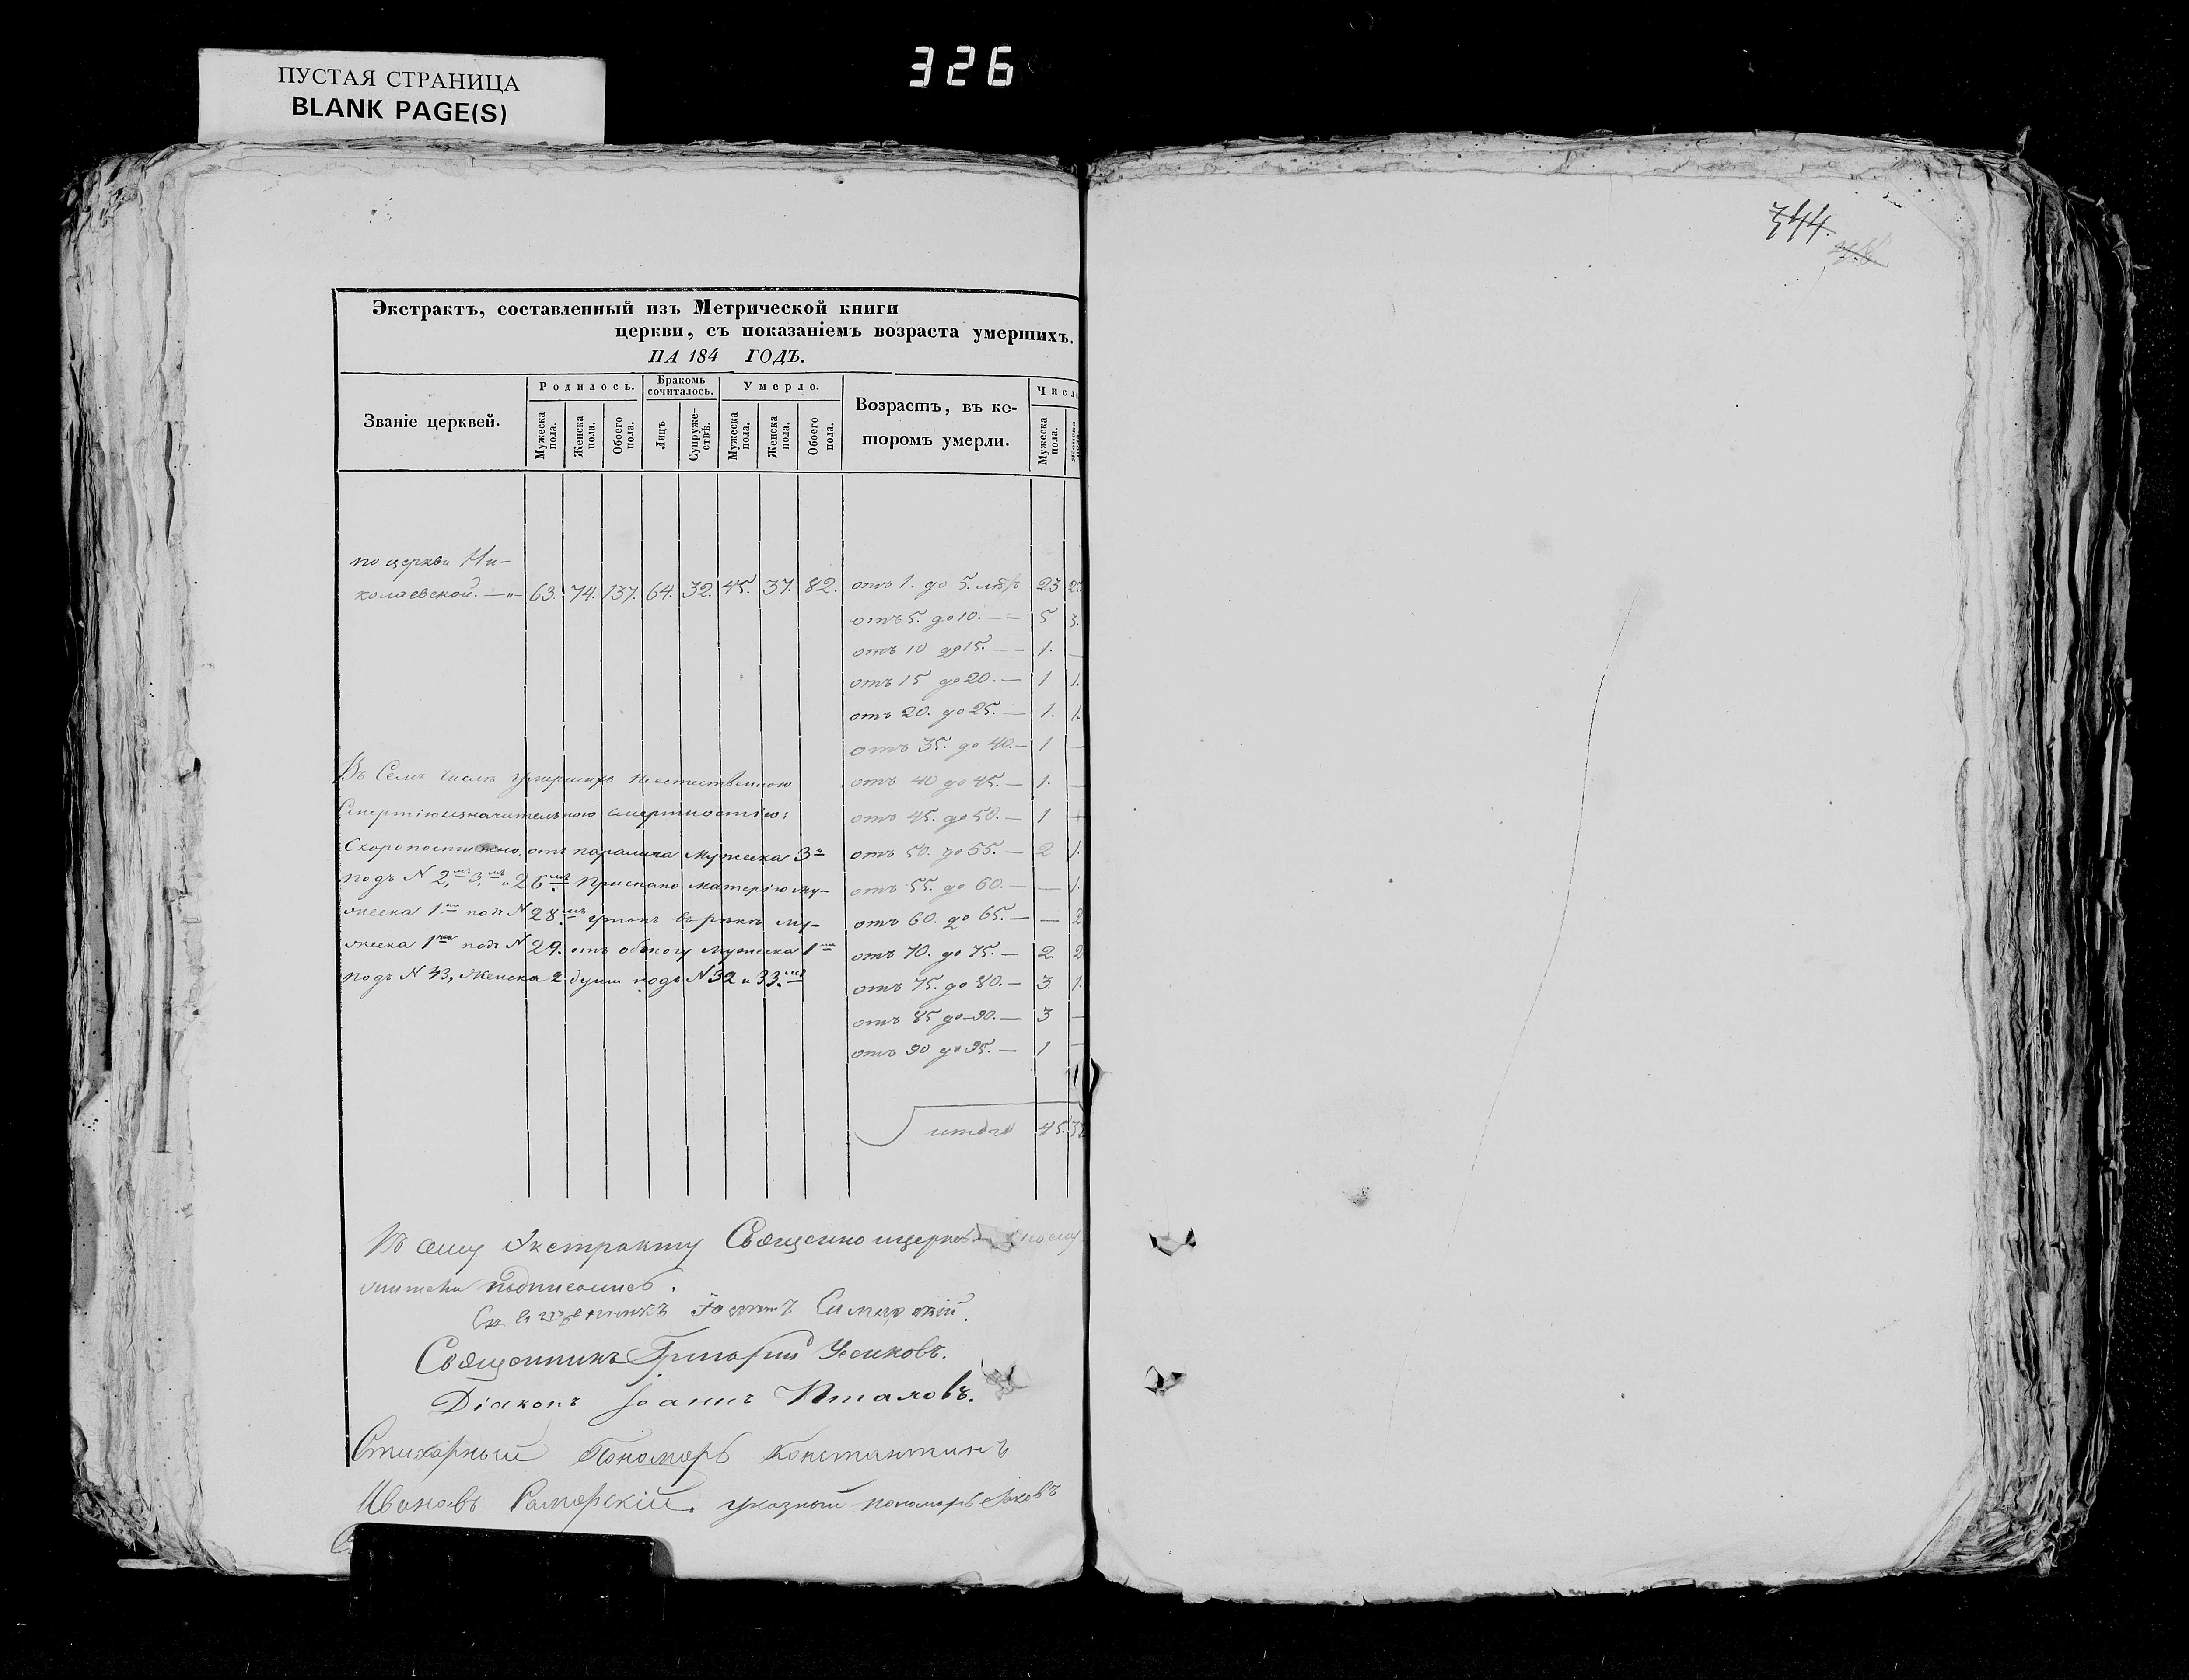 ПУСТАЯ СТРАНИЦА
BLANK PAGE(S)
326
Экстрактъ, составленный изъ Метрической книги
церкви, съ показаніемъ возраста умершихъ.
НА 184 ГОДЪ.
Званіе церквей.
Родилось.
Бракомъ сочиталось.
Умерло.
Возрастъ, въ которомъ умерли.
Числ
Мужеска пола.
Женска пола.
Обоего пола.
Лицъ
Супружествъ.
Мужеска пола.
Женска пола.
Обоего пола.
Мужеска пола.
Женска
по церкви Ни-
колаевской. —„— 63. 74. 137. 64. 32. 45. 37. 82. отъ 1. до 5. лѣтъ 23
отъ 5. до 10. — — 5 3.
отъ 10 до 15. — — 1. —
отъ 15 до 20. — 1 1.
отъ 20. до 25. — 1. 1.
отъ 35. до 40. — 1 —
Въ Семъ числѣ умершихъ неестественною
отъ 40 до 45. — 1. —
Смертію
смертностію:
отъ 45. до 50. — 1 —
Скоропостижно, отъ паралича Мужеска 3
отъ 50. до 55. — 2 1.
подъ N 2, 3, 26 Приспано матерію му-
отъ 55. до 60. — — 1.
жеска 1 подъ N 28 утопъ въ рѣкѣ му-
отъ 60. до 65. — — 2
жеска 1 подъ N 29. отъ Мужеска 1
отъ 70. до 75. — 2. 2
подъ N 43, Женска 2 души подъ N 32 и 33
отъ 75. до 80. — 3. 1.
отъ 85 до 90. — 3 —
отъ 90 до 95. — 1 —
итого 45. 37
Къ сему Экстракту Священно
подписались.
Священникъ Іоаннъ
Священникъ Григорій Усиковъ.
Діаконъ Іоаннъ Италовъ.
Стихарный Пономарь Константинъ
Ивановъ указный пономарь Яковъ
344.